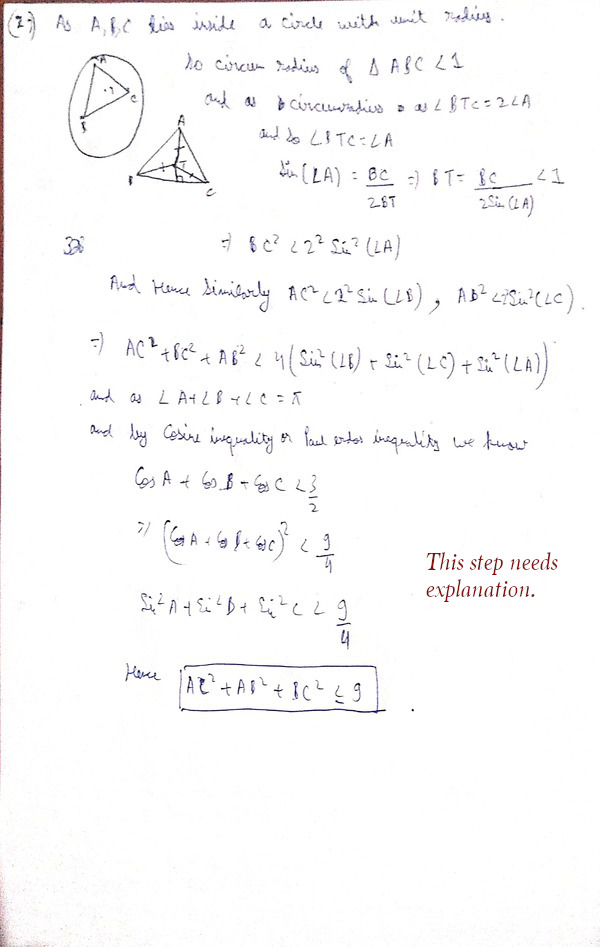 (2:) As A, B, C lies inside a circle with unit radius.
So circum radius of Δ ABC < 1
and as circumradius as ∠BTC = 2∠A
and so ∠BTC = ∠A
Sin(∠A) = BC/2BT ⇒ BT = BC/2Sin(∠A) < 1
⇒ BC² < 2² Sin²(∠A)
And Hence Similarly AC² < 2² Sin(∠B), AB² < 2²Sin²(∠C).
⇒ AC² + BC² + AB² < 4(Sin²(∠B) + Sin²(∠C) + Sin²(∠A))
and as ∠A + ∠B + ∠C = π
and by Cosine inequality or Paul erdos inequality we know
Cos A + Cos B + Cos C < 3/2
⇒ (Cos A + Cos B + Cos C)² < 9/4
This step needs
explanation.
Sin²A + Sin²B + Sin²C < 9/4
Hence AC² + AB² + BC² ≤ 9.
A
B
C
A
B
C
T